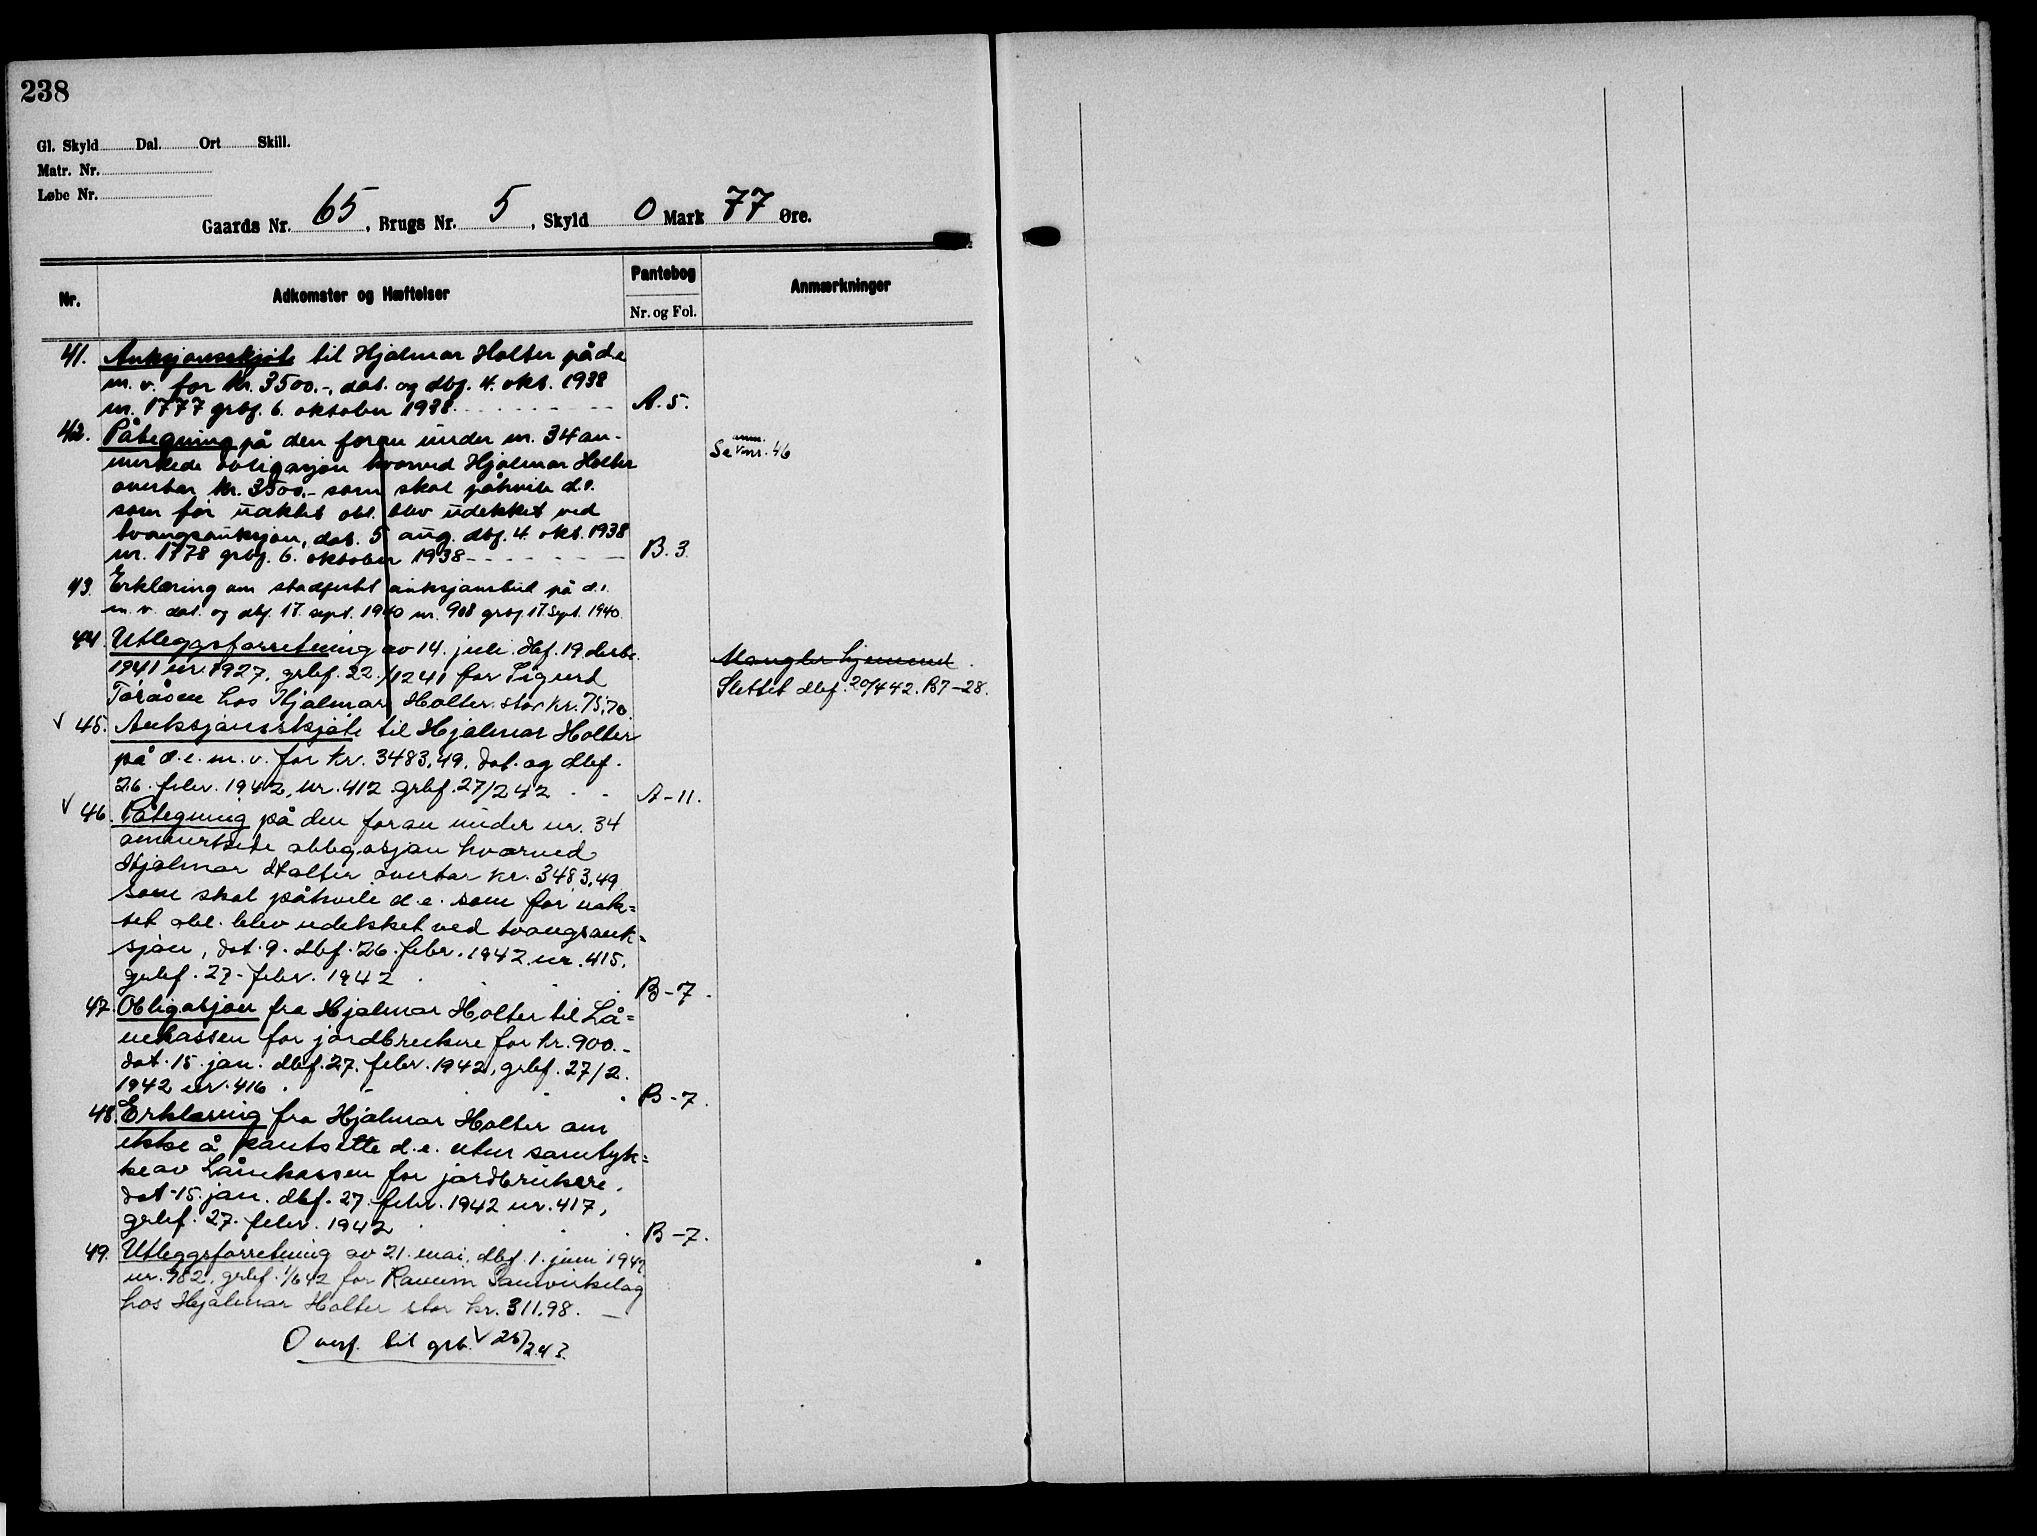 238
Gl. Skyld Dal. Ort Skill.
Matr. Nr.
Løbe Nr.
Gaards Nr. 65, Brugs Nr. 5, Skyld 0 Mark 77 Øre.
Nr. Adkomster og Hæftelser Pantebog Nr. og Fol. Anmærkninger
41. Auksjonsskjøte til Hjalmar Holter på d.e.
m. v. for kr. 3500.-, dat. og dbf. 4. okt. 1938
nr. 1777 grbf. 6. oktober 1938 A. 5.
42. Påtegning på den foran under nr. 34 an- Se anm. v nr. 46
merkede obligasjon hvorved Hjalmar Holter
overtar kr. 3500.- som skal påhvile d.e.
som for uaktet obl. blev udekket ved
tvangsauksjon, dat. 5 aug. dbf. 4. okt. 1938
nr. 1778 grbf. 6. oktober 1938 B. 3.
43. Erklæring om stadfestet auksjonsbud på d.e.
m. v. dat. og dbf. 17. sept. 1940 nr. 908 grbf 17. sept. 1940.
44. Utleggsforretning av 14. juli. dbf. 19. desbr. Mangler hjemmel.
1941 nr. 1927, grbf. 22./1241 for Sigurd Slettet dbf. 20/4 42. B7-28.
Toråsen hos Hjalmar Holter stor kr. 75,70.
v 45. Auksjonsskjøte til Hjalmar Holter
på d.e. m. v. for kr. 3483,49. dat. og dbf.
26. febr. 1942, nr. 412 grbf. 27/2 42 A-11.
v 46. Påtegning på den foran under nr. 34
anmerkede obligasjon hvorved
Hjalmar Holter overtar kr. 3483,49
som skal påhvile d.e. som for uak=
tet obl. blev udekket ved tvangsauk=
sjon, dat. 9. dbf. 26. febr. 1942 nr. 415.
grbf. 27. febr. 1942 B-7.
47. Obligasjon fra Hjalmar Holter til Lå=
nekassen for jordbrukere for kr. 900.-
dat. 15. jan. dbf. 27. febr. 1942, grbf. 27/2.
1942 nr. 416. B-7.
48. Erklæring fra Hjalmar Holter om
ikke å pantsette d.e. uten samtyk=
ke av Lånekassen for jordbrukere.
dat. 15. jan. dbf. 27. febr. 1942 nr. 417,
grbf. 27. febr. 1942 B-7.
49. Utleggsforretning av 21. mai, dbf. 1. juni 1942
nr. 982, grbf. 1/6 42 for Samvirkelag
hos Hjalmar Holter stor kr. 311.98.
Overf. til grb. V 25/2 43.